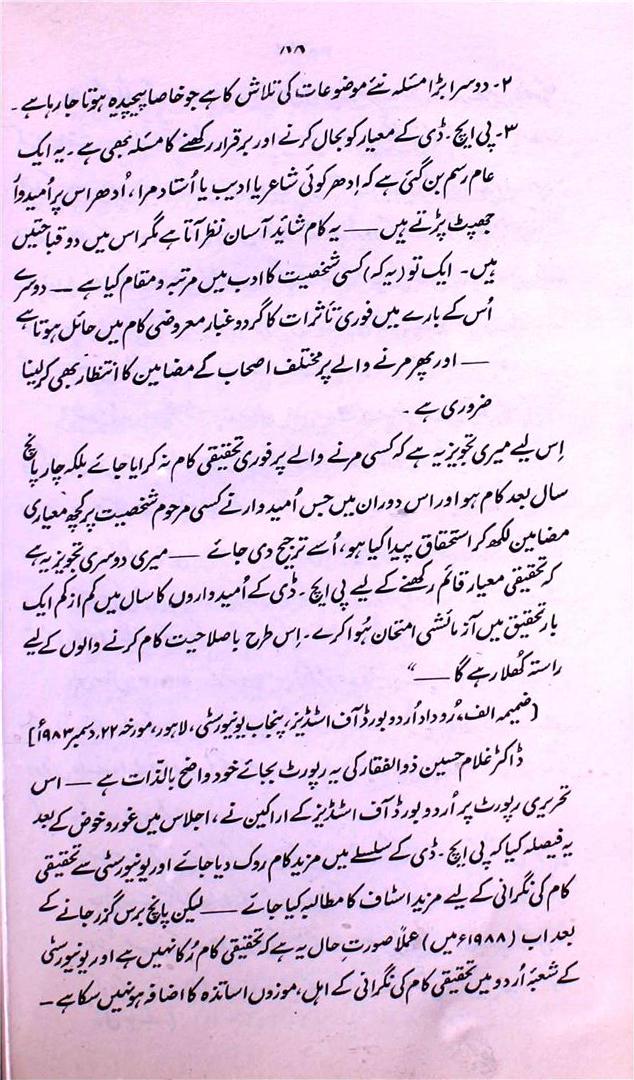 ۱۶
۲- دوسرا بڑا مسئلہ نئے موضوعات کی تلاش کا ہے جو خاصا پیچیدہ ہوتا جا رہا ہے۔
۳- پی ایچ۔ڈی کے معیار کو بحال کرنے اور برقرار رکھنے کا مسئلہ بھی ہے۔ یہ ایک
عام رسم بن گئی ہے کہ اِدھر کوئی شاعر یا ادیب یا اُستاد مرا، اُدھر اس پر اُمیدوار
جھپٹ پڑتے ہیں —— یہ کام شاید آسان نظر آتا ہے مگر اس میں دو قباحتیں
ہیں۔ ایک تو (یہ کہ) کسی شخصیت کا ادب میں مرتبہ و مقام کیا ہے —— دوسرے
اُس کے بارے میں فوری تأثرات کا گرد و غبار معروضی کام میں حائل ہوتا ہے
—— اور پھر مرنے والے پر مختلف اصحاب کے مضامین کا انتظار بھی کر لینا
ضروری ہے۔
اِس لیے میری تجویز یہ ہے کہ کسی مرنے والے پر فوری تحقیقی کام نہ کرایا جائے بلکہ چار پانچ
سال بعد کام ہو اور اس دوران میں جس اُمیدوار نے کسی مرحوم شخصیت پر کچھ معیاری
مضامین لکھ کر استحقاق پیدا کیا ہو، اُسے ترجیح دی جائے —— میری دوسری تجویز یہ ہے
کہ تحقیقی معیار قائم رکھنے کے لیے پی ایچ۔ڈی کے اُمیدواروں کا سال میں کم از کم ایک
بار تحقیق میں آزمائشی امتحان ہُوا کرے۔ اِس طرح باصلاحیت کام کرنے والوں کے لیے
راستہ کُھلا رہے گا ——“
[ضمیمہ الف، رُوداد اُردو بورڈ آف اسٹڈیز، پنجاب یونیورسٹی، لاہور، مورخہ ۲۲؍ دسمبر ۱۹۸۳ء]
ڈاکٹر غلام حسین ذوالفقار کی یہ رپورٹ بجائے خود واضح بالذّات ہے —— اس
تحریری رپورٹ پر اُردو بورڈ آف اسٹڈیز کے اراکین نے، اجلاس میں غور و خوض کے بعد
یہ فیصلہ کیا کہ پی ایچ۔ڈی کے سلسلے میں مزید کام روک دیا جائے اور یونیورسٹی سے تحقیقی
کام کی نگرانی کے لیے مزید اسٹاف کا مطالبہ کیا جائے —— لیکن پانچ برس گزر جانے کے
بعد اب (۱۹۸۸ء میں) عملاً صورتِ حال یہ ہے کہ تحقیقی کام رُکا نہیں ہے اور یونیورسٹی
کے شعبۂ اُردو میں تحقیقی کام کی نگرانی کے اہل، موزوں اساتذہ کا اضافہ ہو نہیں سکا ہے۔